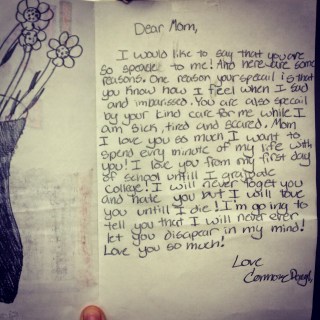 Dear Mom,
I would like to say that you are
so speael to me! And here are some
reasons. One reason your specail is that
you know how I feel when I sad
and imbarissed. You are also specail
by your kind care for me while I
am sick, tired and scared. Mom
I love you so much I want to
spend evrly minute of my life with
you! I love you from my first day
of school untill I graduate
College! I will never foget you
and hate you but I will love
you untill I die! I'm going to
tell you that I will never ever
let you disapear in my mind!
Love you so much!
Love